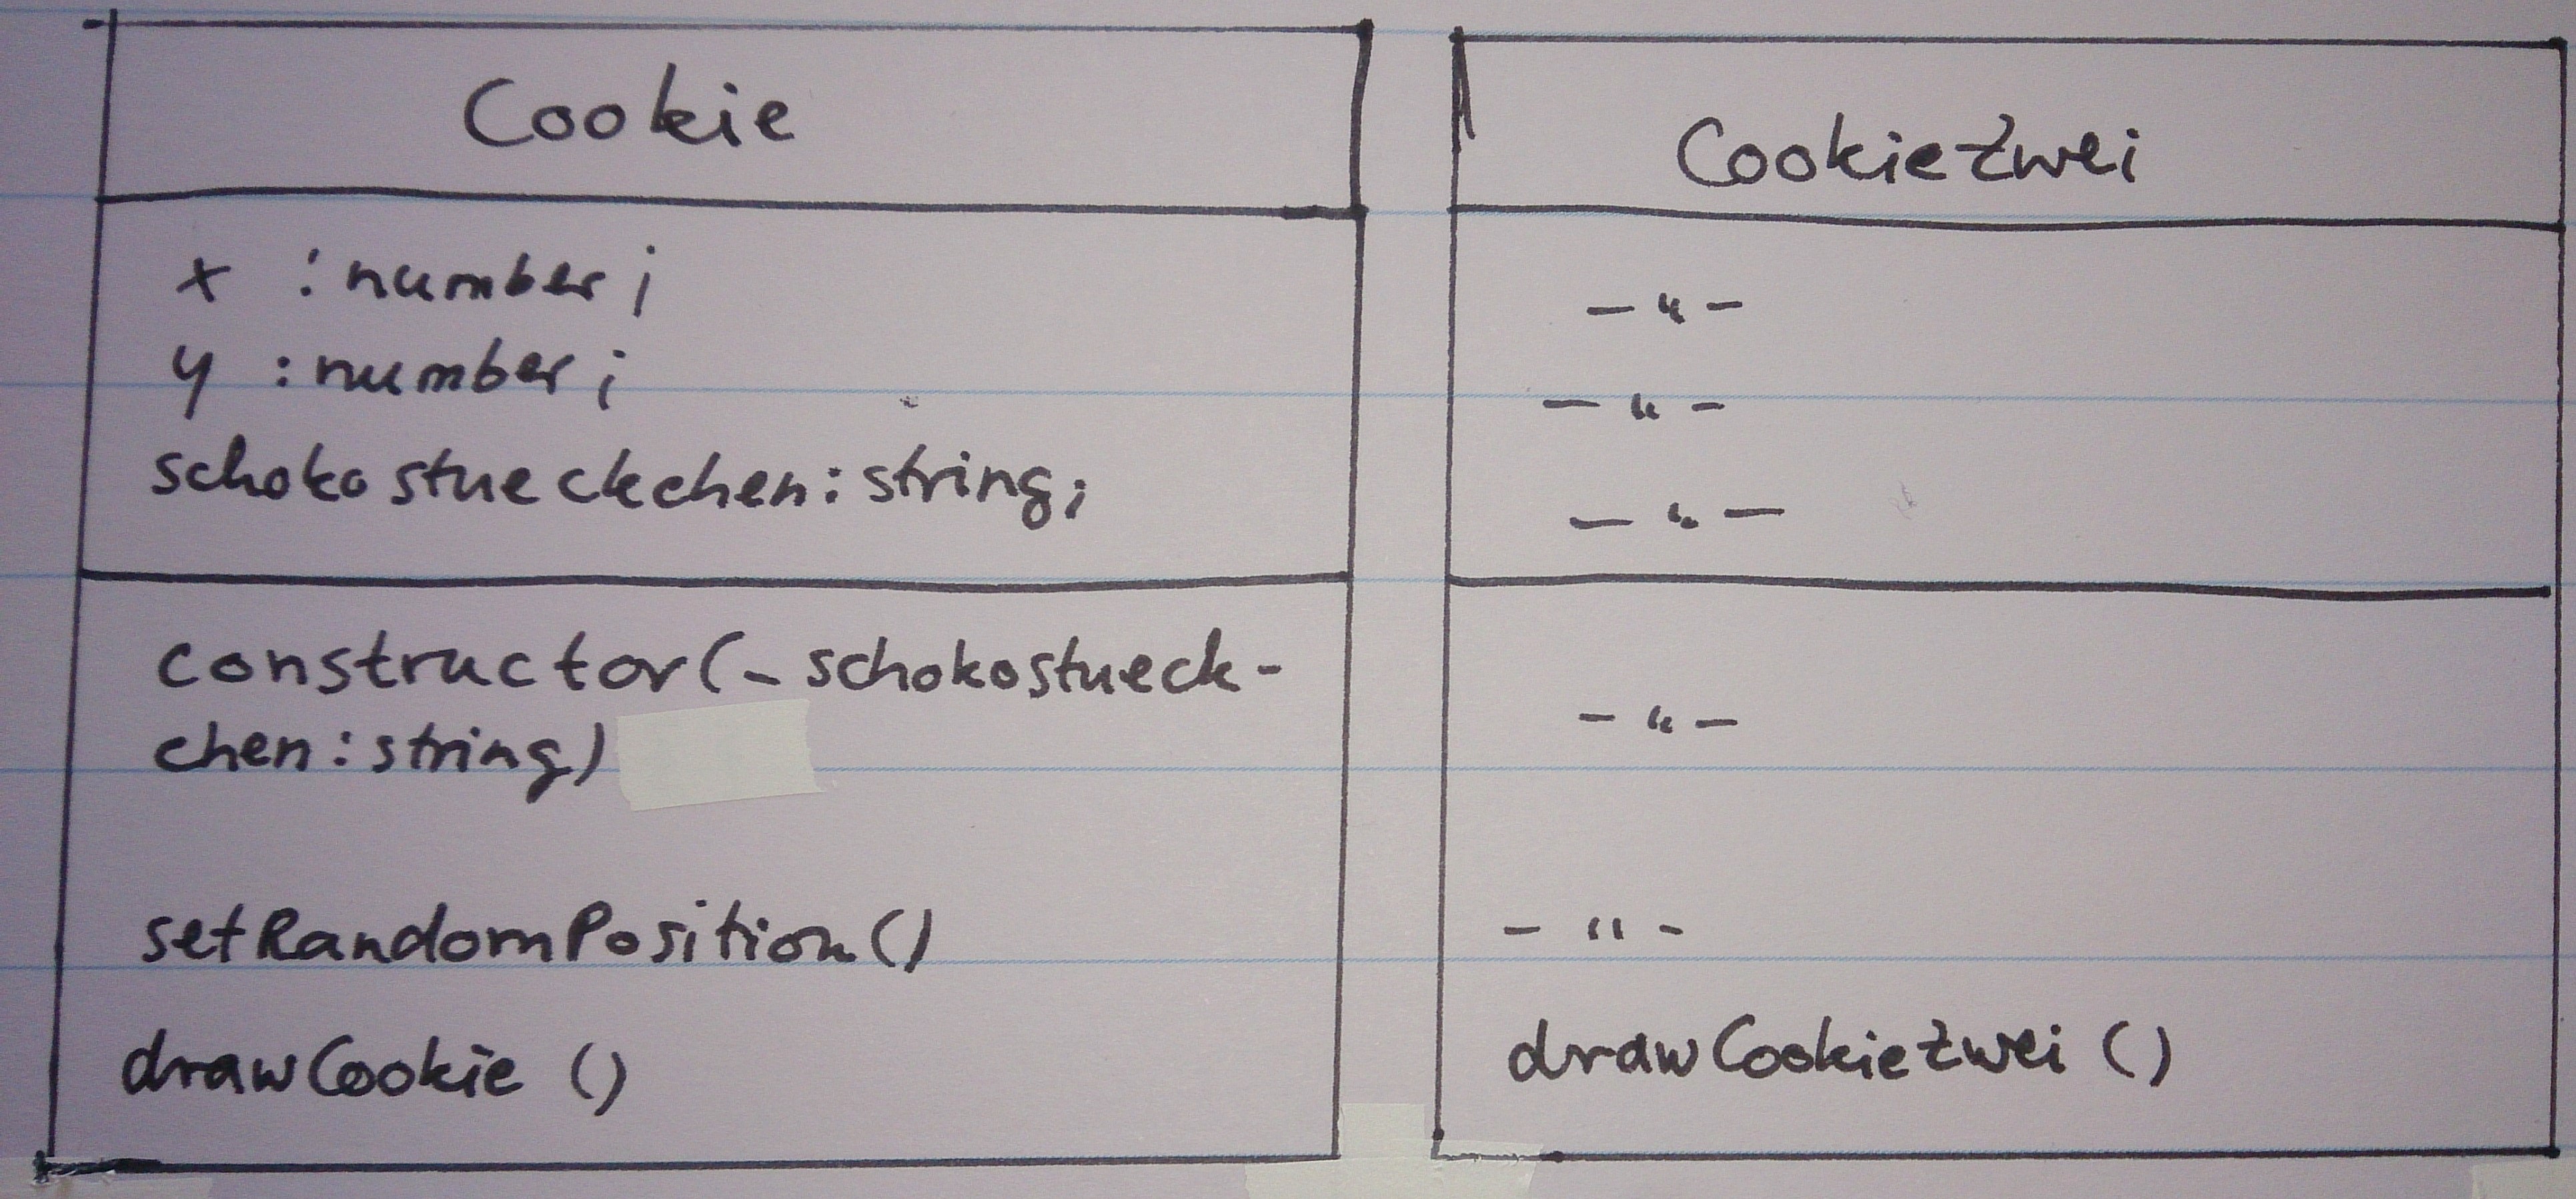 Cookie
x : number;
y : number;
schokostueckchen: string;
constructor(_schokostueck-
chen: string)
setRandomPosition()
drawCookie ()
CookieZwei
- " -
- " -
- " -
- " -
- " -
drawCookieZwei ()